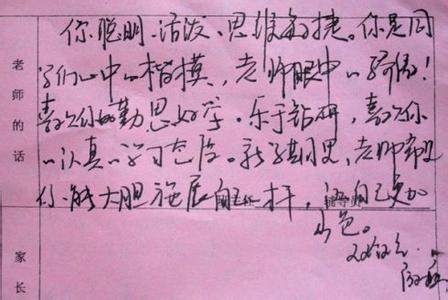 你聪明、活泼、思维敏捷。你是同
学们心中的楷模，老师眼中的骄傲！
喜欢你的勤思好学、乐于钻研，喜欢你
的认真的学习态度。新学期里，老师希望
你能大胆施展自己，自己更加
出色。
老师的话
家长